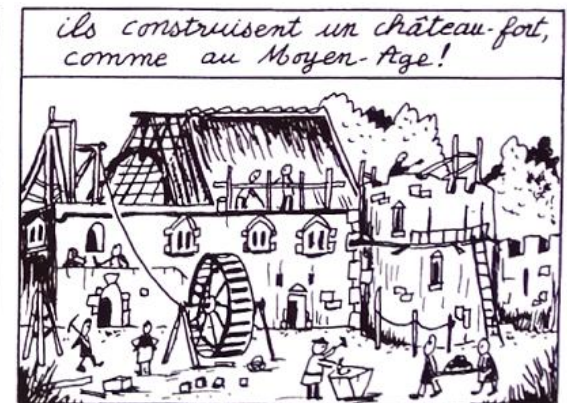 ils construisent un château-fort,
comme au Moyen-Age!